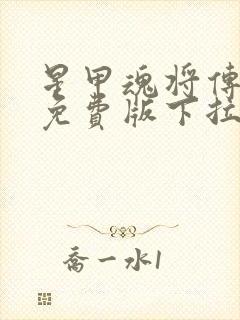 星甲魂将傳
免費版下拉
喬一水1